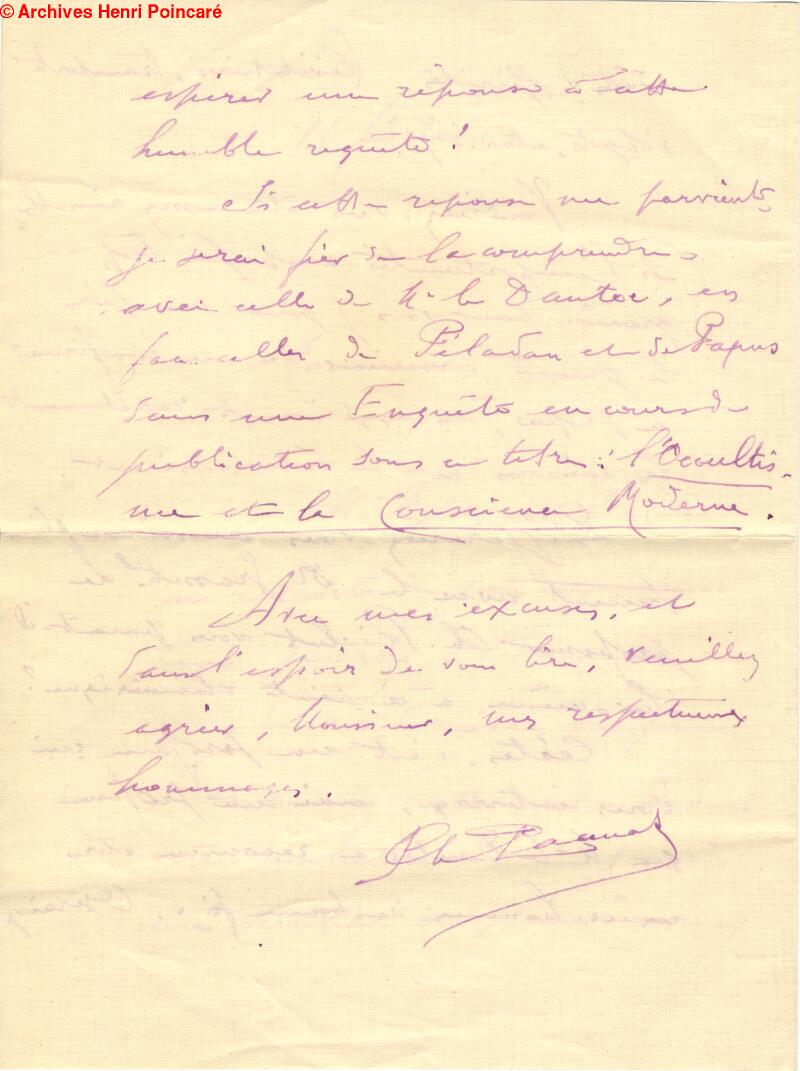 © Archives Henri Poincaré
espérer une réponse à cette
humble requête !
Si cette réponse me parvient,
je serai fier de la comprendre
avec celle de M. le Dantec, en
face celles de Péladan et de Papus
dans une Enquête en cours de
publication sous ce titre : l'Occultis-
me et la Conscience Moderne.
Avec mes excuses, et
dans l'espoir de vous lire, veuillez
agréer, Monsieur, mes respectueux
hommages.